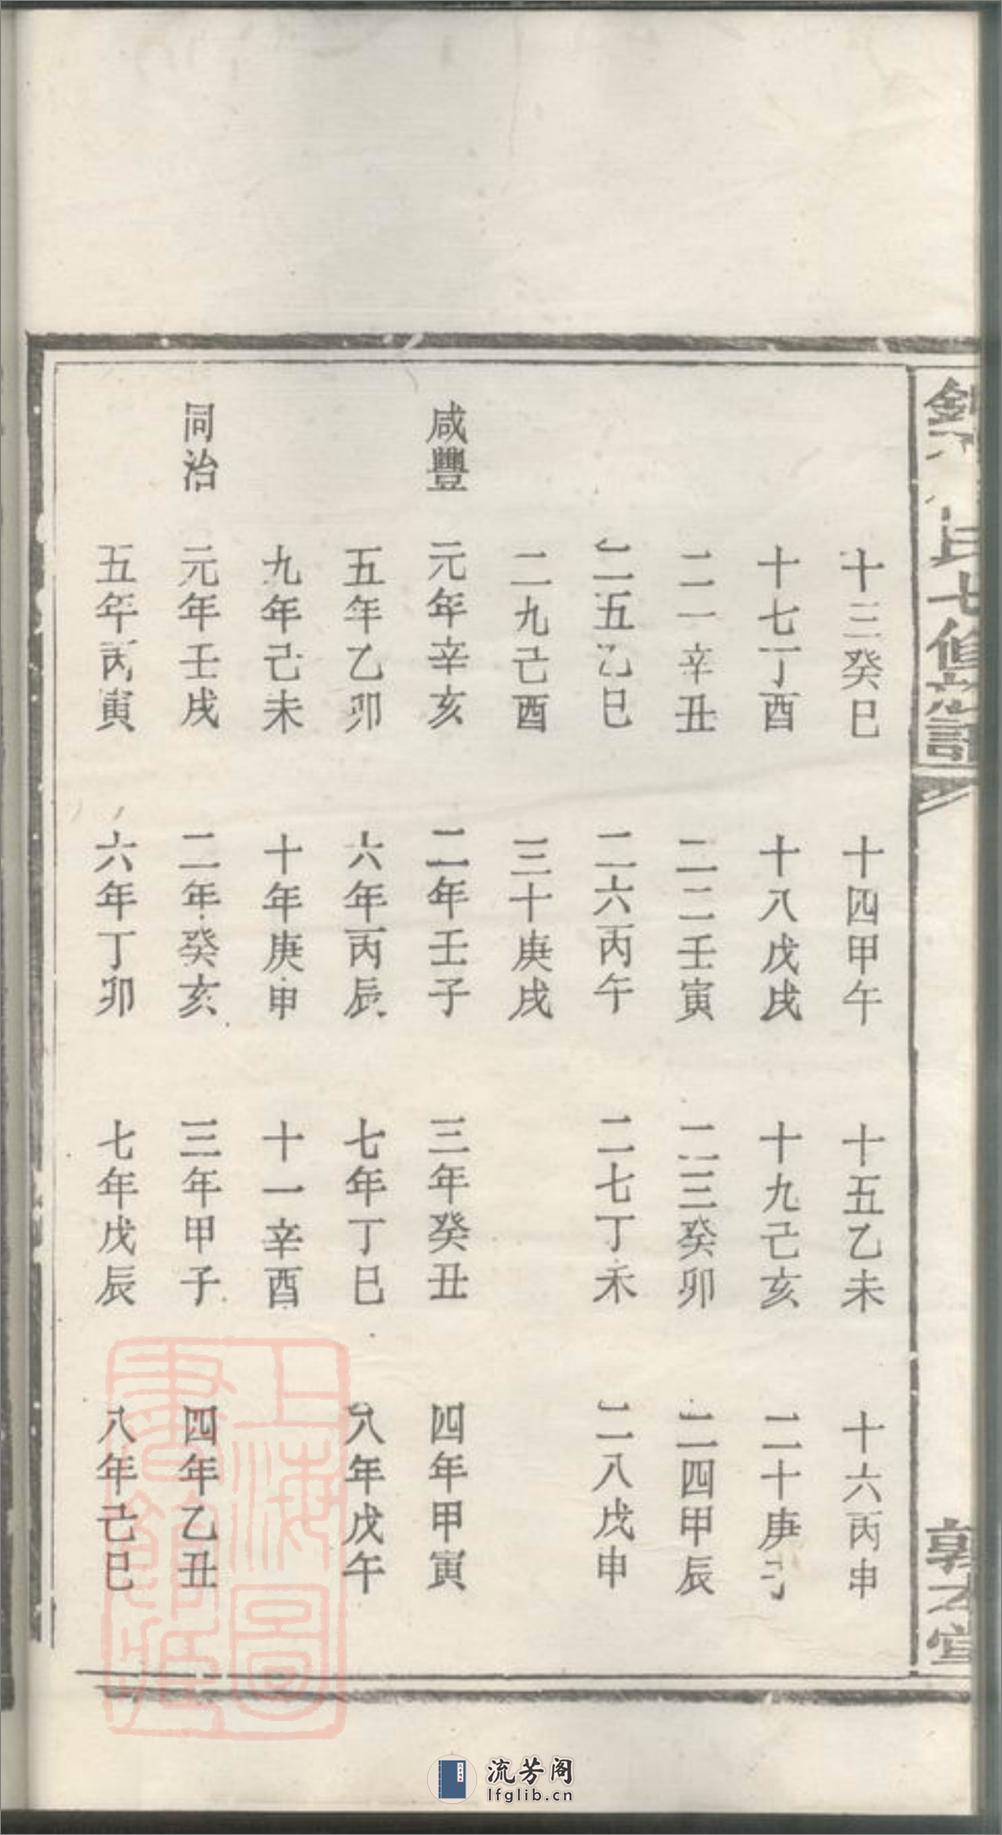 氏七修宗譜
十三癸巳 十四甲午 十五乙未 十六丙申
十七丁酉 十八戊戌 十九己亥 二十庚子
二一辛丑 二二壬寅 二三癸卯 二四甲辰
二五乙巳 二六丙午 二七丁未 二八戊申
二九己酉 三十庚戌
咸豐 元年辛亥 二年壬子 三年癸丑 四年甲寅
五年乙卯 六年丙辰 七年丁巳 八年戊午
九年己未 十年庚申 十一辛酉
同治 元年壬戌 二年癸亥 三年甲子 四年乙丑
五年丙寅 六年丁卯 七年戊辰 八年己巳
上海圖書館藏
流芳阁
lfglib.cn